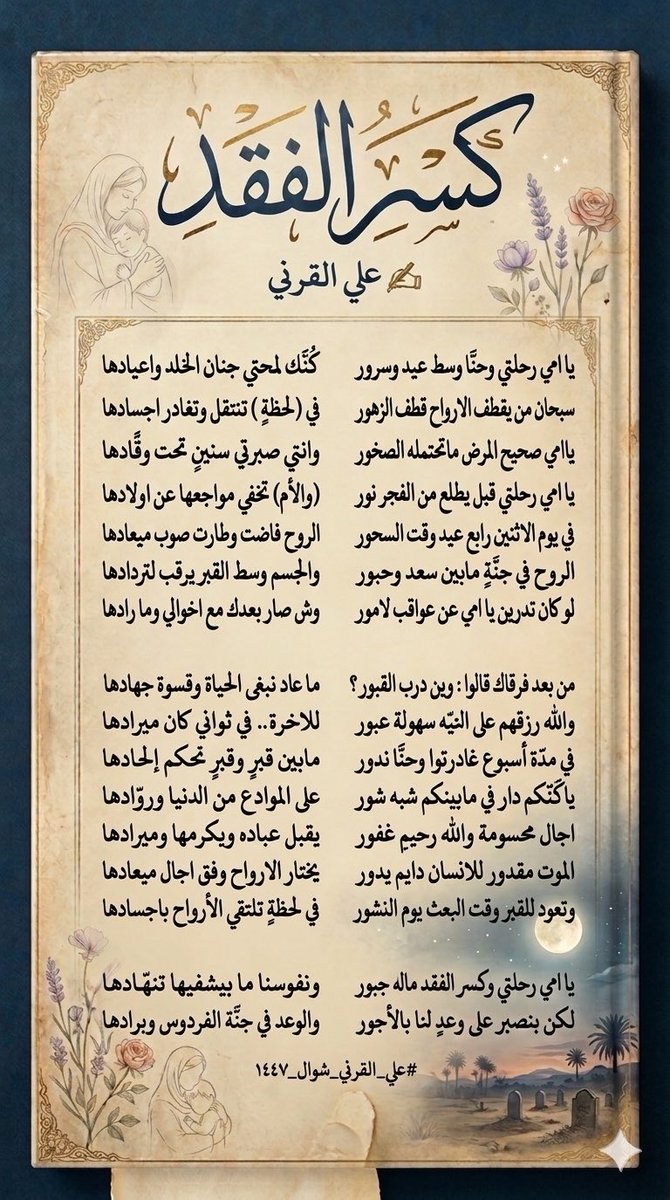 كسرِ الفقدِ
علي القرني
يا امي رحلتي وحنَّا وسط عيد وسرور كُنَّك لمحتي جنان الخلد واعيادها
سبحان من يقطف الارواح قطف الزهور في (لحظةٍ ) تنتقل وتغادر اجسادها
ياامي صحيح المرض ماتحتمله الصخور وانتي صبرتي سنينٍ تحت وقَّادها
يا امي رحلتي قبل يطلع من الفجر نور (والأم) تخفي مواجعها عن اولادها
في يوم الاثنين رابع عيد وقت السحور الروح فاضت وطارت صوب ميعادها
الروح في جنَّةٍ مابين سعد وحبور والجسم وسط القبر يرقب لتردادها
لو كان تدرين يا امي عن عواقب لامور وش صار بعدك مع اخوالي وما رادها
من بعد فرقاك قالوا : وين درب القبور ؟ ما عاد نبغى الحياة وقسوة جهادها
والله رزقهم على النيّه سهولة عبور للاخرة.. في ثواني كان ميرادها
في مدّة أسبوع غادرتوا وحنَّا ندور مابين قبرٍ وقبرٍ تحكم إلحادها
ياكَنّكم دار في مابينكم شبه شور على الموادع من الدنيا وروّادها
اجال محسومة والله رحيمٍ غفور يقبل عباده ويكرمها وميرادها
الموت مقدور للانسان دايم يدور يختار الارواح وفق اجال ميعادها
وتعود للقبر وقت البعث يوم النشور في لحظةٍ تلتقي الأرواح باجسادها
يا امي رحلتي وكسر الفقد ماله جبور ونفوسنا ما بيشفيها تنهّادها
لكن بنصبر على وعدٍ لنا بالأجور والوعد في جنَّة الفردوس وبرادها
#علي_القرني_شوال_١٤٤٧